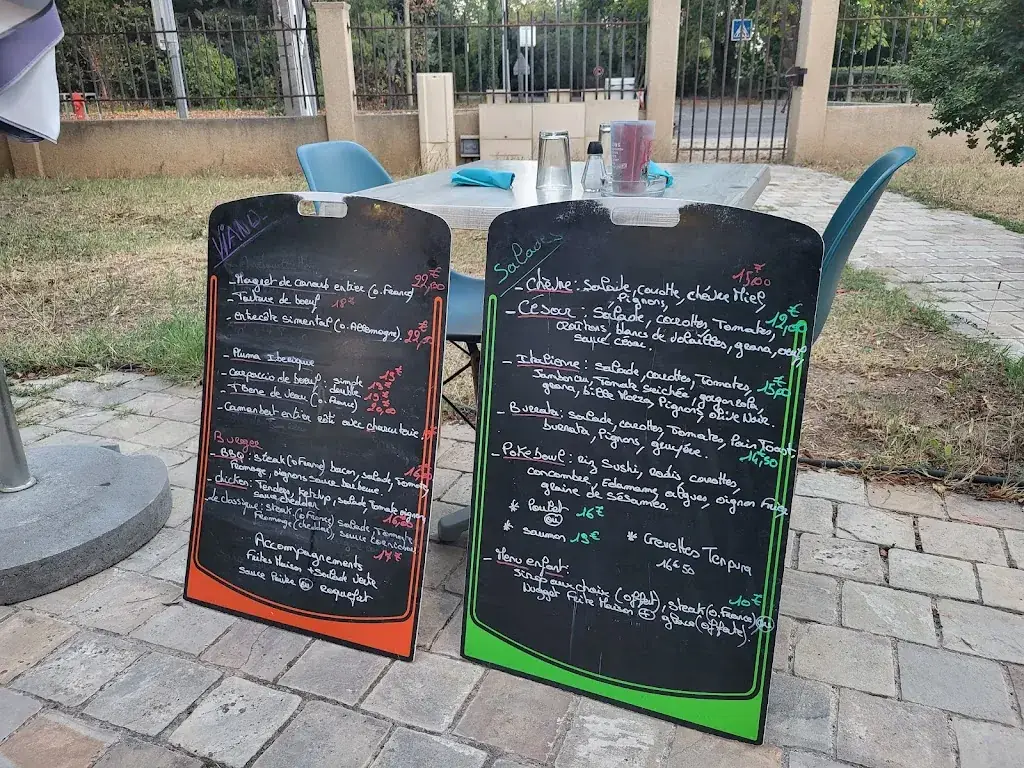 VIAND
- Magret de canard entier (o. France) 22,00€
- Tartare de boeuf 18€
- entrecôte simental (o. Allemagne) 22,50€
- Pluma Iberique
- Carpaccio de boeuf : simple 15€
double 19€
- T Bone de veau (o. France) 20,00
- Camembert entier rôti avec charcuterie
Burger
- BBQ : steak (o France) bacon, salade, Tomate
Fromage, oignons sauce barbecue.
- chicken : Tenders, ketchup, salade Tomate oignon
sauce cheddar 16,00
- le classique : steak (o. France) salade, Tomate
Fromage (cheddar), sauce cornichon
17€
Accompagnements
Frites Maison + Salade Verte
Sauce Poivre ou Roquefort
Salades
15,00€
- Chèvre : Salade, carotte, chèvre Miel,
Pignons,
- César : Salade, carottes, Tomates, 12,00€
croûtons, blancs de volailles, grana, oeuf
sauce césar
- Italienne : salade, carottes, Tomates,
Jambon cru, Tomate Seichée, gorgonzola, 15,00€
grana, bille Mozza, Pignons, olive Noir.
- Burrata : salade, carottes, Tomates, Pain Toast
burrata, pignons, gruyère. 14,50€
- Poke bowl : Riz Sushi, Radis, carottes,
concombre, Edamame, algues, oignon Frise
graine de sésames.
* Poulet 16€
ou
* saumon 19€
* Crevettes Tenpura
16€50
- Menu enfant : 10€
Sirop aux choix (offert), steak (o. France) ou
Nugget Frite Maison + glace (offerte)